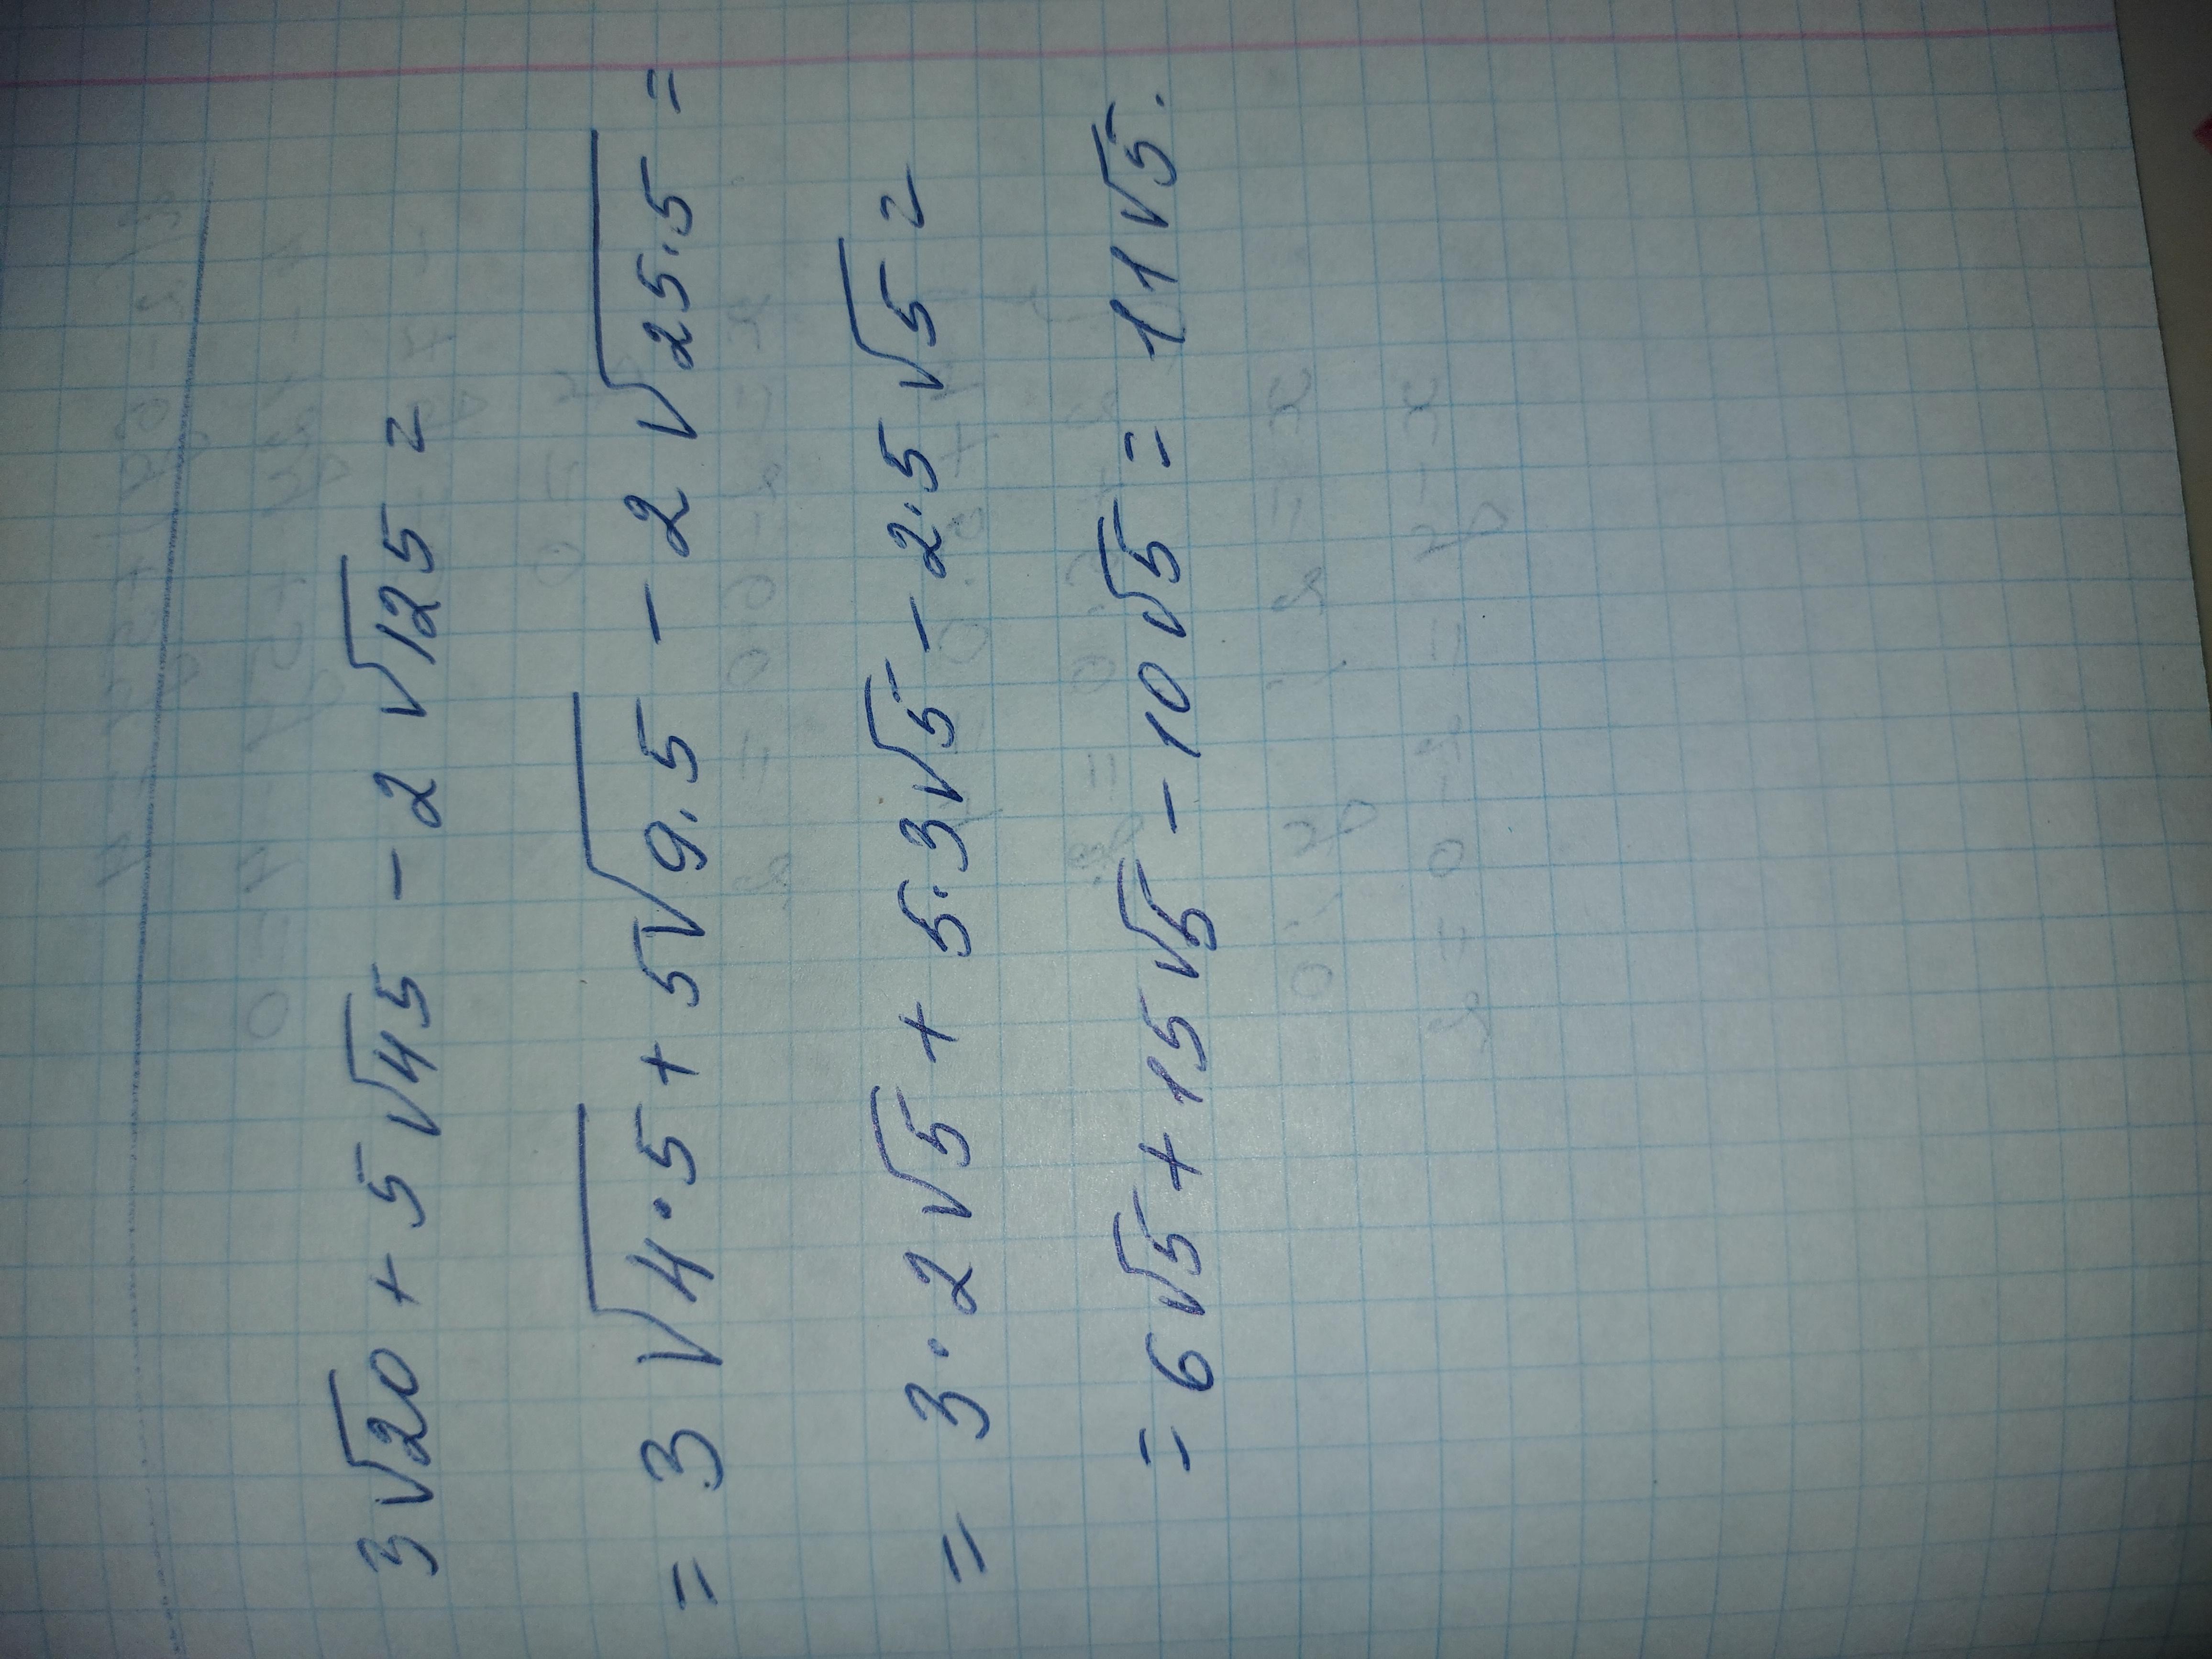 3√20 + 5√45 - 2√125 =
= 3√4·5 + 5√9·5 - 2√25·5 =
= 3·2√5 + 5·3√5 - 2·5√5 =
= 6√5 + 15√5 - 10√5 = 11√5.